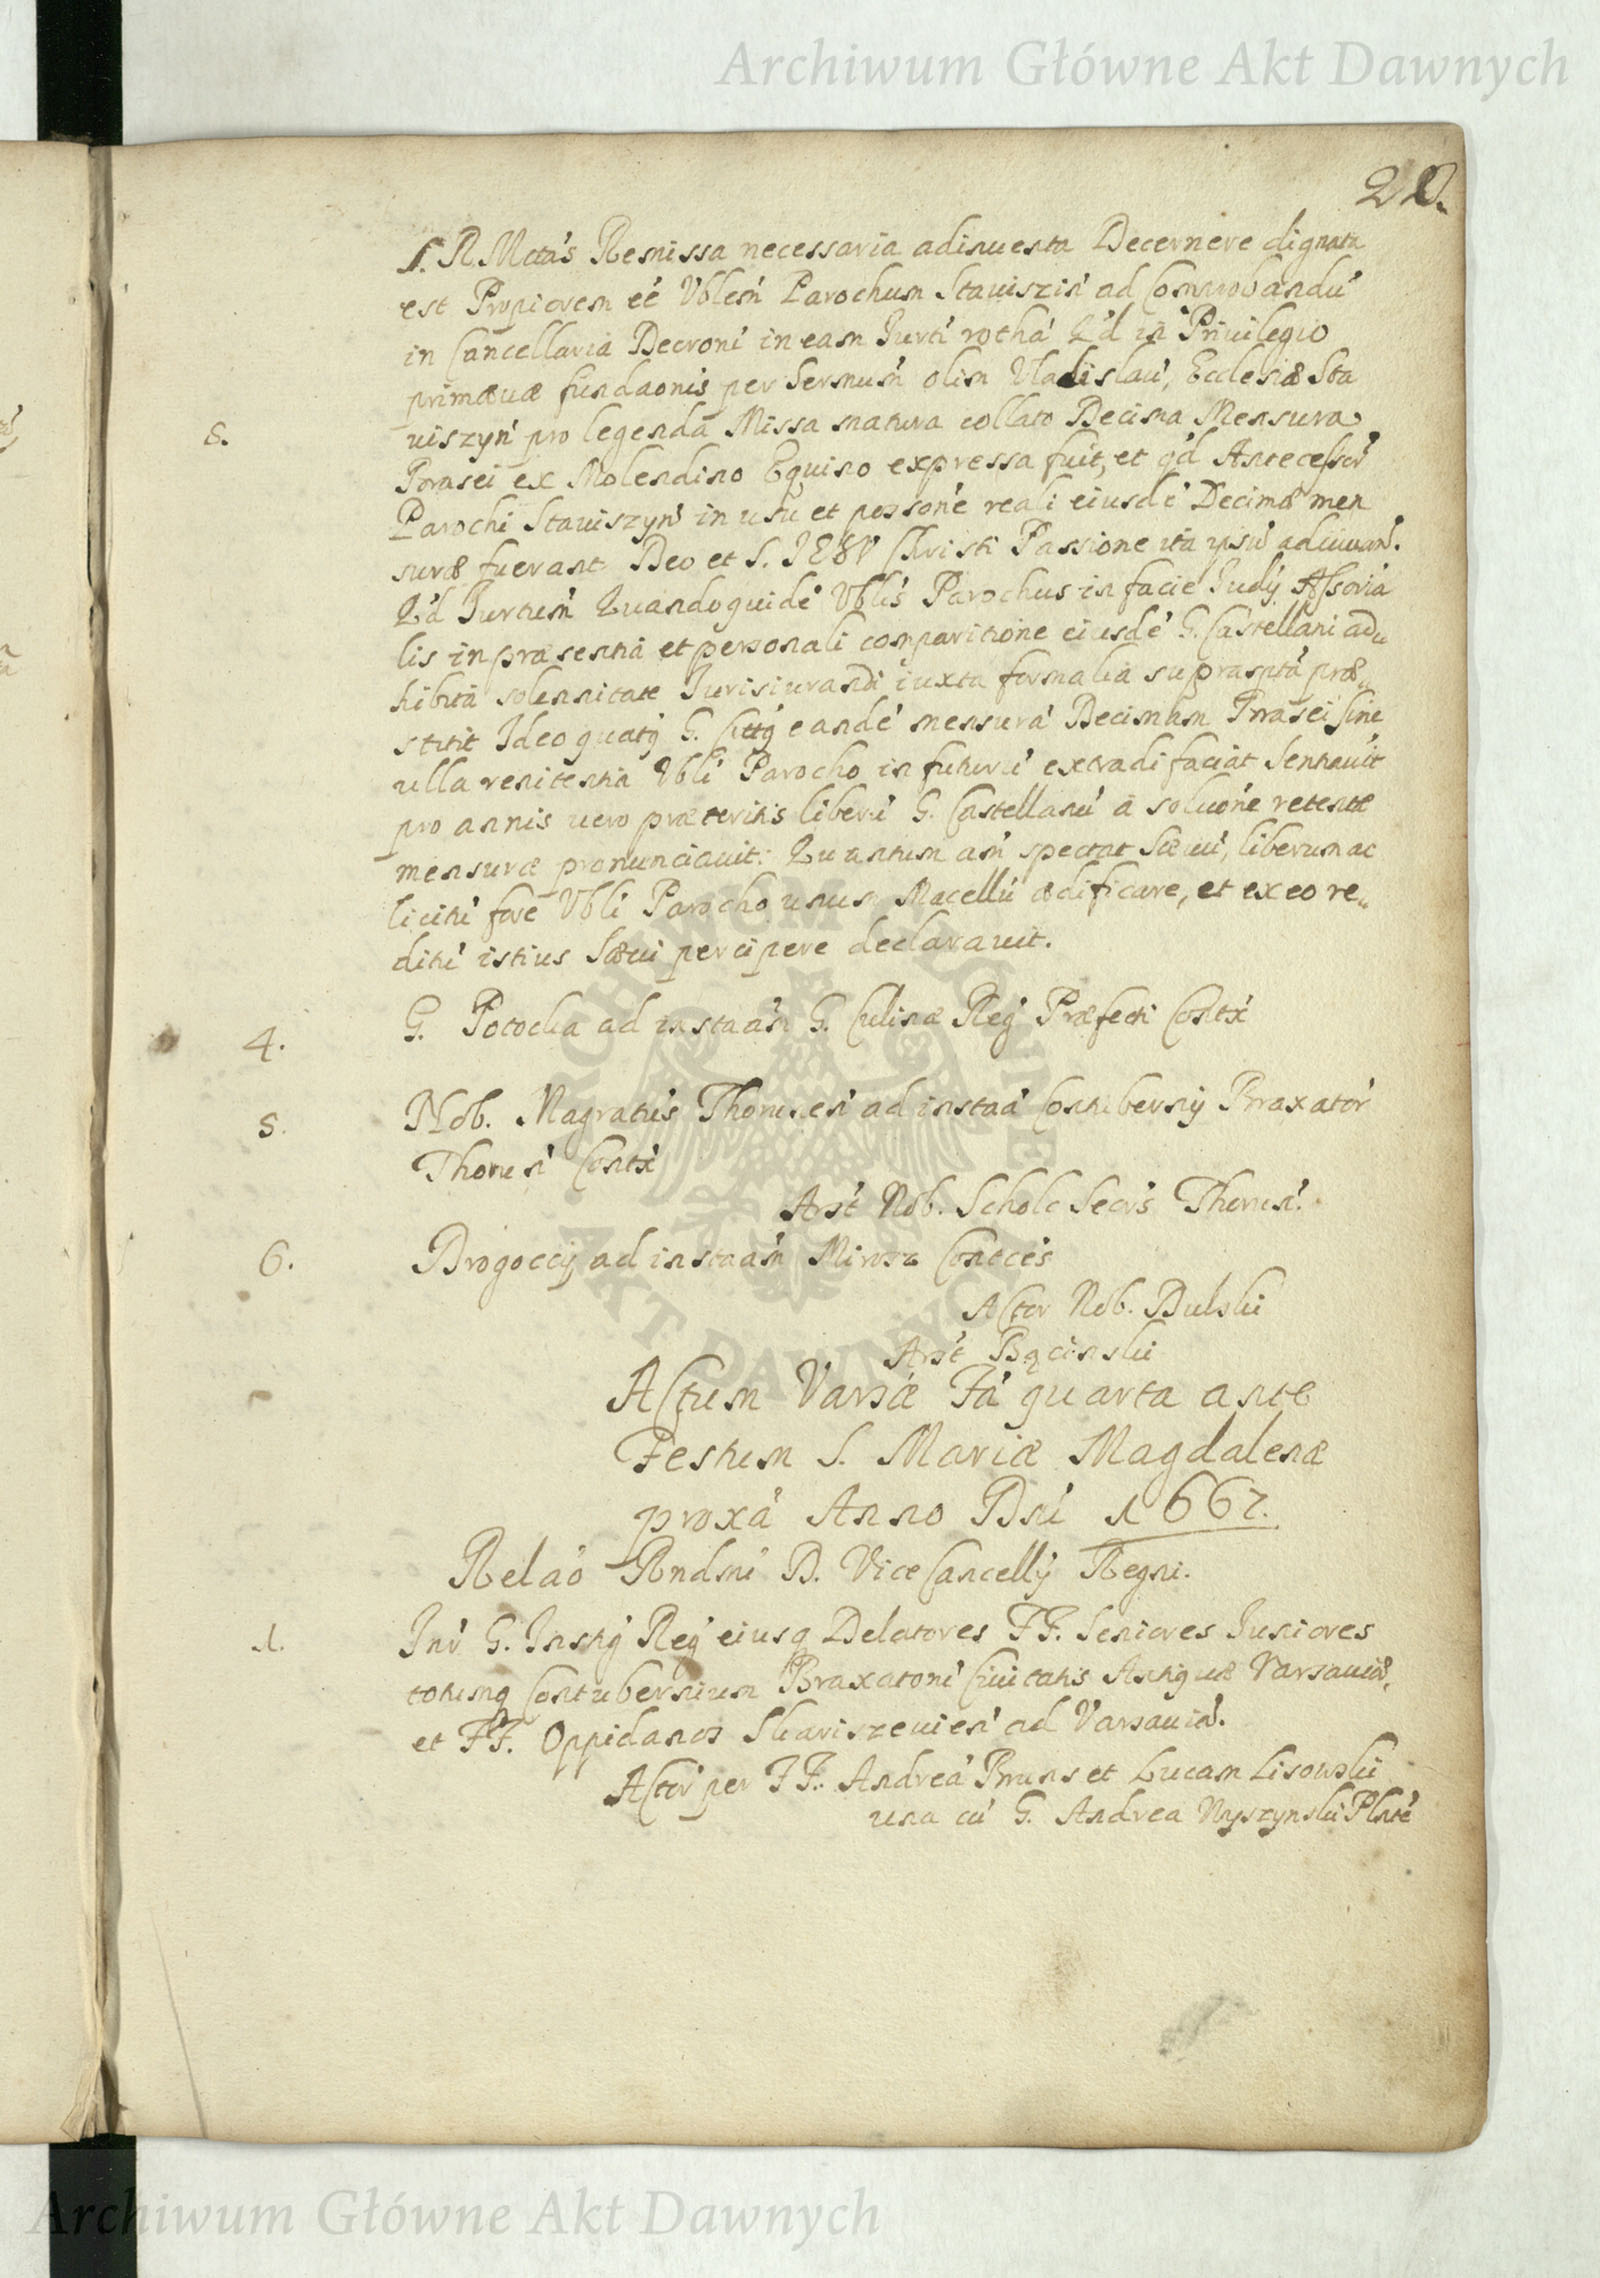 Archiwum Główne Akt Dawnych
20.
S. R. Mttas Remissa necessaria adinuenta Decernere dignata
est Propiorem ee Vblem Parochum Stauiszin ad Comprobandu
in Cancellaria Decroru in eam Jurti rotha Qd in Priuilegio
primæuæ fundaonis per Sermum olim Vladislau, Ecclesiæ Sta
uiszyn pro legenda Missa matura collato Decima Mensura
8.
Brasei ex Molendino Equino expressa fuit, et qd Antecessor
Parochi Stauiszyn in usu et possone reali eiusde Decimæ men
suræ fuerant Deo et S. IESV Christi Passione ita ipsu adiuuan.
Qd Jurtum Quandoquide Vblis Parochus in facie Judy Assoria
lis in præsentia et personali comparitione eiusde G. Castellani ad„
hibita solennitate Jurisiurandi iuxta formalia suprasptа præ„
stitit Ideo quatq G. Cittq eande mensura Decimam Brasei sine
ulla renitentia Vbli Parocho in futuru extradi faciat Sentauit
pro annis uero præteritis liberu G. Castellanu a soluone retentæ
mensuræ pronunciauit: Quantum am spectat Sæuu, liberum ac
licitu fore Vbli Parocho unum Macellu ædificare, et ex eo re„
ditu istius Sæui percipere declarauit.
4.
G. Potocka ad instaam G. Culinæ Reg Præfecti Contx
5.
Nob. Magratus Thorunen ad instaa Contubernij Braxator
Thorun Contx
Arst Nob. Scholc Secris Thorun.
6.
Drogoccij ad instaam Mirosz Contces
Actor Nob. Dulski
Arst Bącinski
Actum Varsæ Fa quarta ante
Festum S. Mariæ Magdalenæ
proxa Anno Dni 1667.
Relao Rndmi D. ViceCancellij Regni.
1.
Inr G. Instig Reg eiusq Delatores FF. Seniores Juniores
totumq Contubernium Braxatoru Ciuitatis Antiquæ Varsauiæ,
et FF. Oppidanos Skariszeuien ad Varsauia.
Actor per FF. Andrea Bruns et Lucam Lisowski
una cu G. Andrea Wyszynski Plnte
Archiwum Główne Akt Dawnych